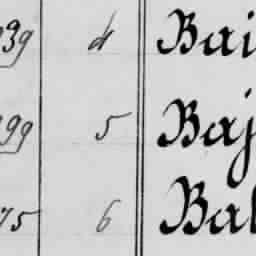 39 4 Bai
99 5 Baj
75 6 Bal